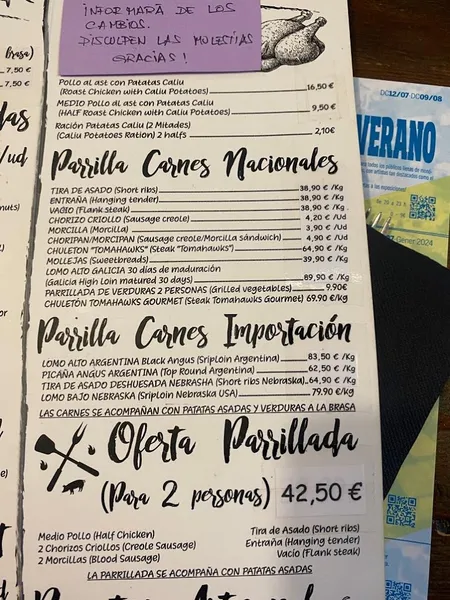 INFORMARÁ DE LOS
CAMBIOS.
DISCULPEN LAS MOLESTIAS
GRACIAS!
Brasa)
7,50 €
7,50 €
/ud
Pollo al ast con Patatas Caliu
(Roast Chicken with Caliu Potatoes) 16,50 €
MEDIO Pollo al ast con Patatas Caliu
(HALF Roast Chicken with Caliu Potatoes) 9,50 €
Ración Patatas Caliu (2 Mitades)
(Caliu Potatoes Ration) 2 halfs 2,10€
Parrilla Carnes Nacionales
TIRA DE ASADO (Short ribs) 38,90 € /Kg
ENTRAÑA (Hanging tender) 38,90 € /Kg
VACIO (Flank steak) 38,90 € /Kg
CHORIZO CRIOLLO (Sausage creole) 4,20 € /Ud
MORCILLA (Morcilla) 3,90 € /Ud
CHORIPAN/MORCIPAN (Sausage creole/Morcilla sándwich) 4,90 € /Ud
CHULETON "TOMAHAWKS" (Steak "Tomahawks") 64,90 € /Kg
MOLLEJAS (Sweetbreads) 39,90 € /Kg
LOMO ALTO GALICIA 30 días de maduración
(Galicia High Loin matured 30 days) 89,90 € /Kg
PARRILLADA DE VERDURAS 2 PERSONAS (Grilled vegetables) 9.90€
CHULETÓN TOMAHAWKS GOURMET (Steak Tomahawks Gourmet) 69.90 €/Kg
Parrilla Carnes Importación
LOMO ALTO ARGENTINA Black Angus (Sriploin Argentina) 83,50 € /Kg
PICAÑA ANGUS ARGENTINA (Top Round Argentina) 62,50 € /Kg
TIRA DE ASADO DESHUESADA NEBRASHA (Short ribs Nebraska) 64,90 € /Kg
LOMO BAJO NEBRASKA (Sriploin Nebraska USA) 79.90 €/kg
LAS CARNES SE ACOMPAÑAN CON PATATAS ASADAS Y VERDURAS A LA BRASA
Oferta Parrillada
(Para 2 personas) 42,50 €
Medio Pollo (Half Chicken)
2 Chorizos Criollos (Creole Sausage)
2 Morcillas (Blood Sausage)
Tira de Asado (Short ribs)
Entraña (Hanging tender)
Vacío (Flank steak)
LA PARRILLADA SE ACOMPAÑA CON PATATAS ASADAS
DC12/07-DC09/08
VERANO